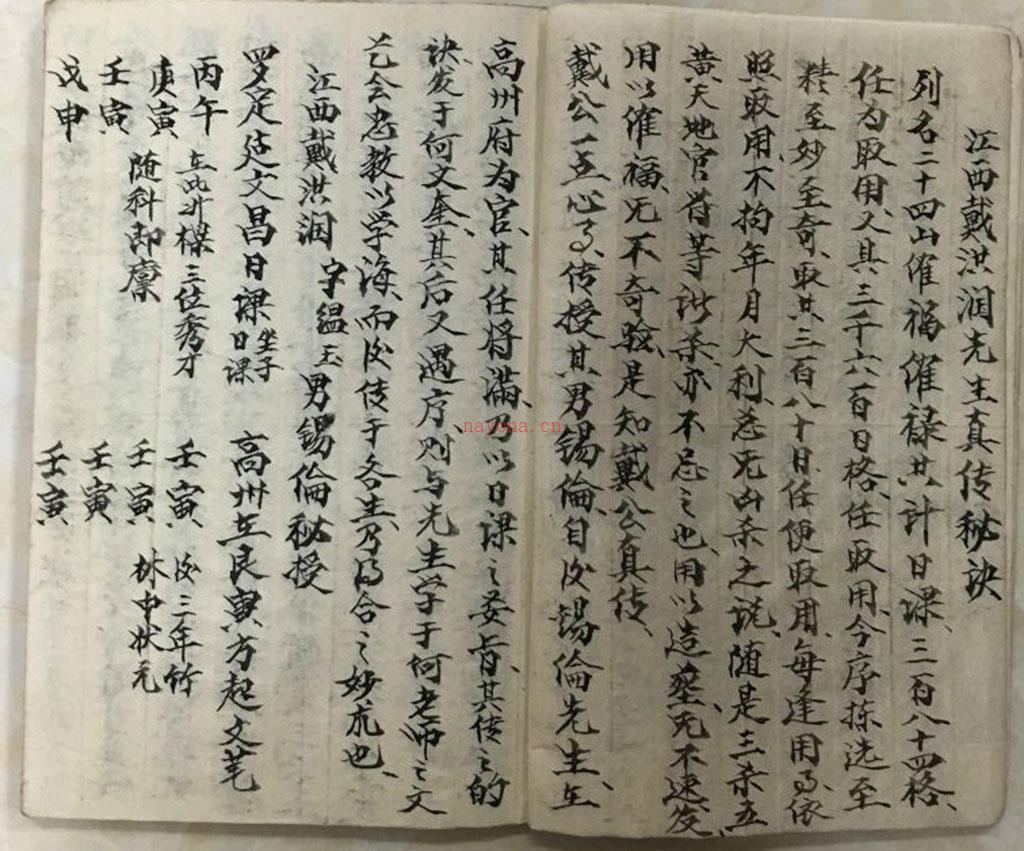 江西戴洪润先生真传秘诀
列名二十四山催福催禄共计日课、三百八十四格、
任为取用、又具三千六百日格、任取用、今序拣选至
精至妙至奇、取共三百八十日、任便取用、每逢用、依
照取用、不拘年月大利、忌无凶杀之说、随是三杀五
黄天地官符等诸杀、亦不忌之也、用以造葬无不速发、
用以催福、无不奇验、是知戴公真传、
戴公一点心、传授其男锡倫、自後锡倫先生、在
高州府为官、其任将满、乃以日课之妥旨、其传之的
诀发于何文奎、其后又遇序、则与先生学于何老师之文
艺会、教以学海、而後传于各生、乃合之妙也、
江西戴洪润 字緼玉 男锡倫秘授
罗定廷文昌日课 坐子日课
丙午 在此升樑三位秀才
庚寅
壬寅 随科即廪
戊申
高州在艮寅方起文笔
壬寅 後三年竹
壬寅 林中状元
壬寅
壬寅
nayona.cn